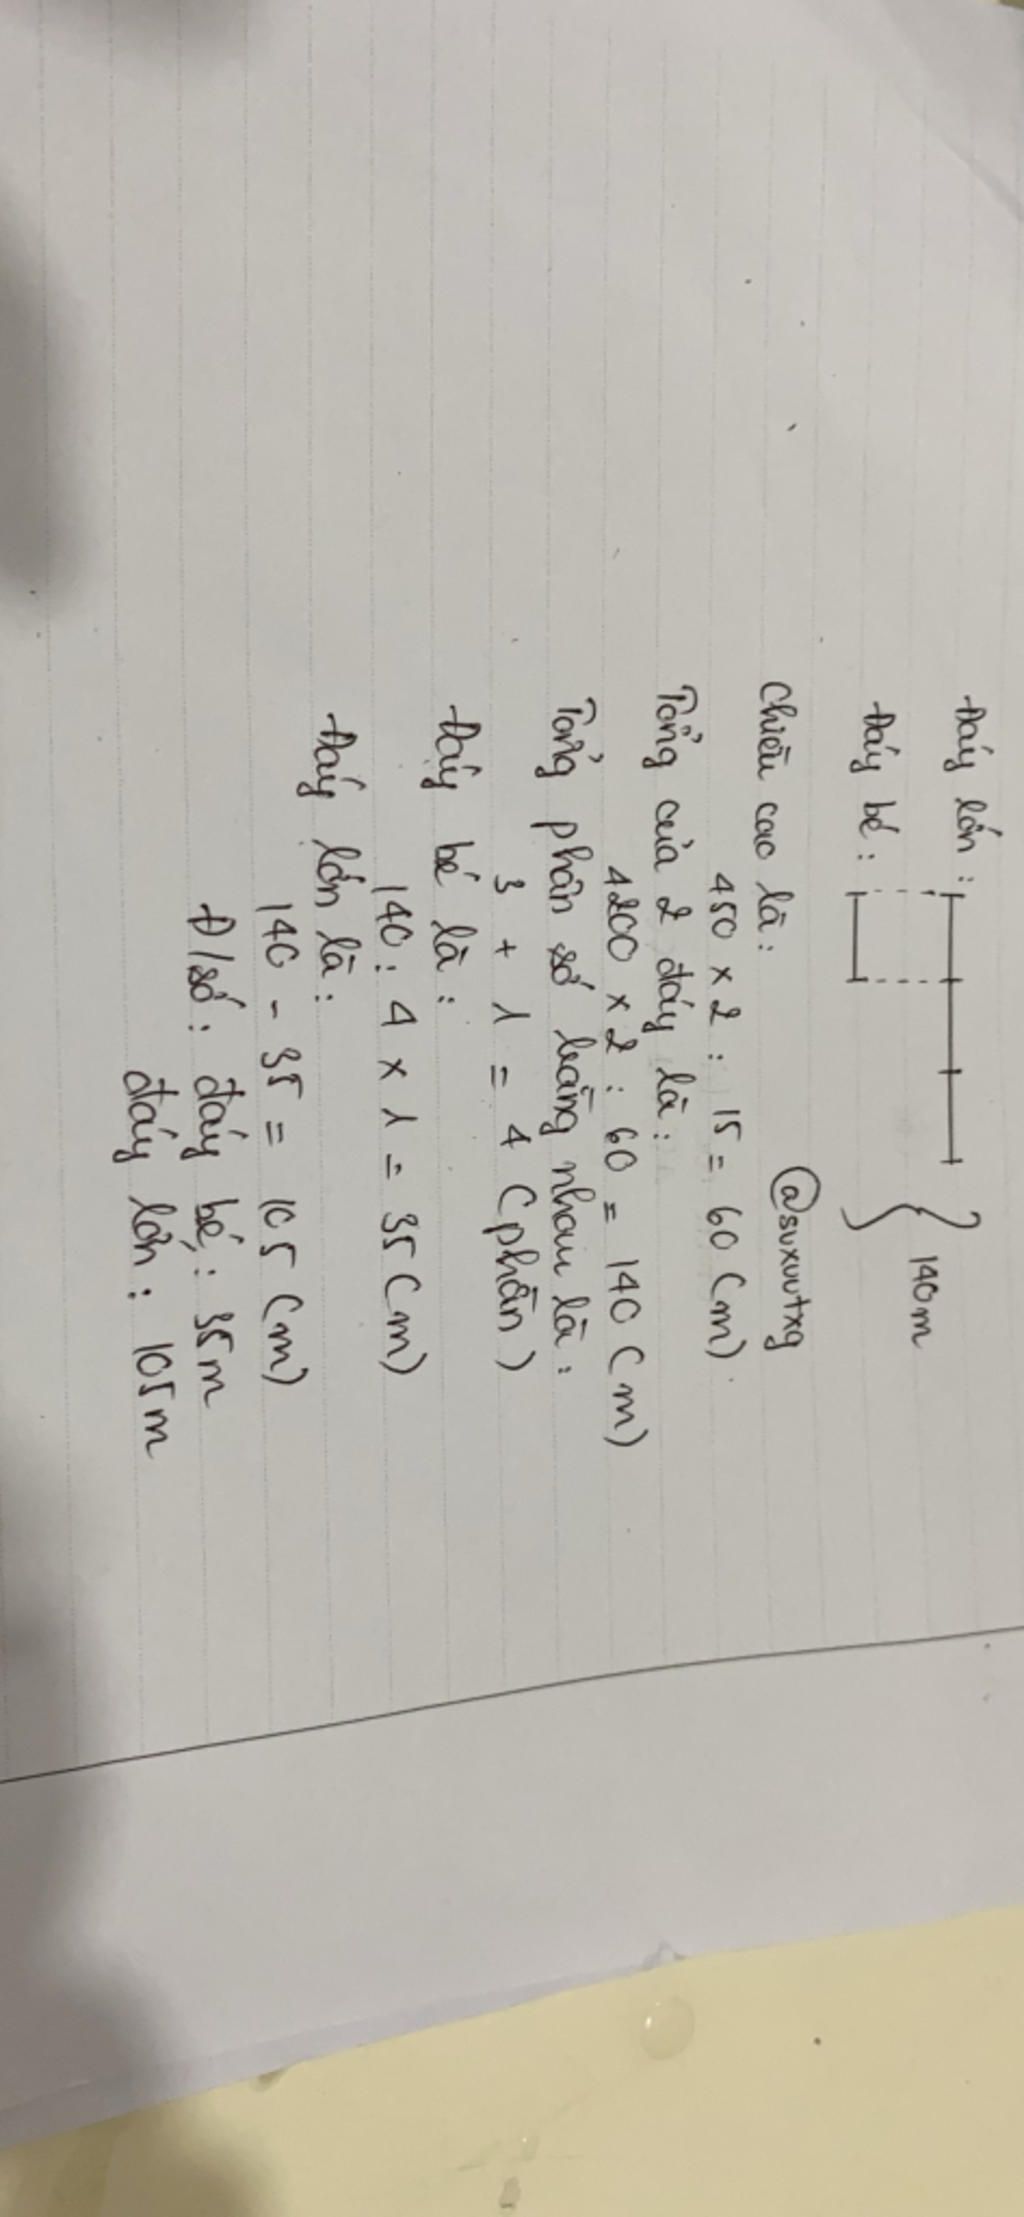 Đáy lớn:
140m
Đáy bé:
@suxuutxg
Chiều cao là:
450 x 2 : 15 = 60 (m)
Tổng của 2 đáy là:
4200 x 2 : 60 = 140 (m)
Tổng phần số bằng nhau là:
3 + 1 = 4 (phần)
Đáy bé là:
140 : 4 x 1 = 35 (m)
Đáy lớn là:
140 - 35 = 105 (m)
Đ/số: đáy bé: 35m
đáy lớn: 105m